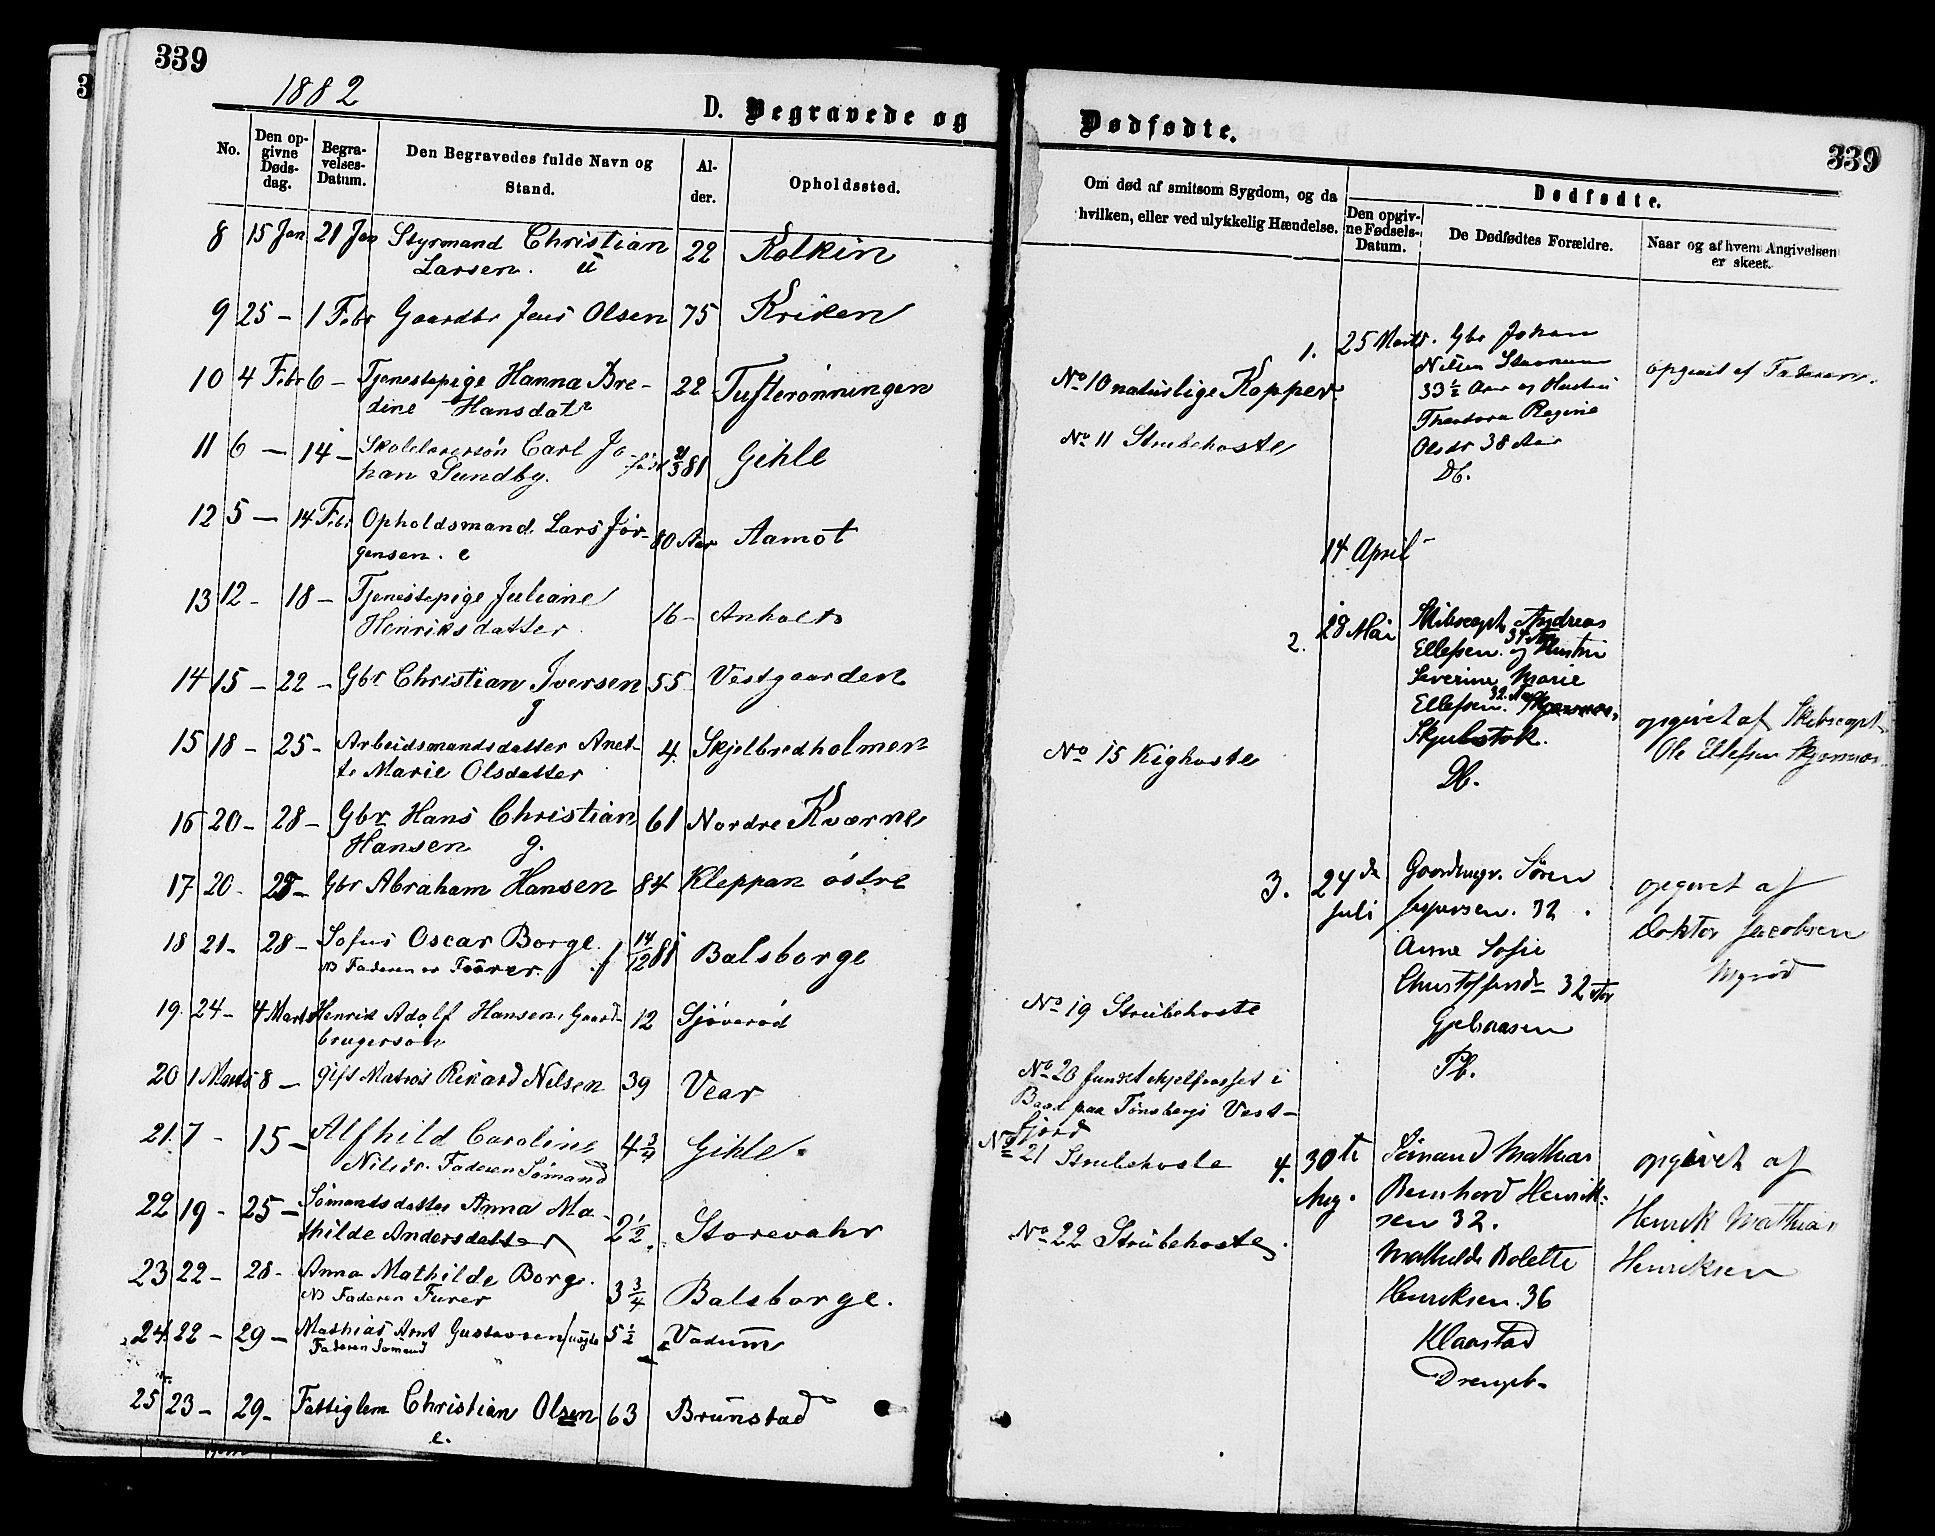 339
1882
D. Begravede og
No.
Den op-
givne
Døds-
dag.
Begra-
velses-
Datum.
Den Begravedes fulde Navn og
Stand.
Al-
der.
Opholdssted.
8 15 Jan 21 Jan Styrmand Christian 22 Kolkin
Larsen. ū
9 25 — 1 Febr Gaardbr Jens Olsen 75 Kriken
10 4 Febr 6 — Tjenestepige Hanna Bre- 22 Tufterönningen
dine Hansdatr
11 6 — 14 — Skolelærersön Carl Jo- 81 Gihle
han Sundby.
12 5 — 14 Febr Opholdsmand Lars Jör- 80 Aar Aamot
gensen. e
13 12 - 18 — Tjenestepige Juliane 16 - Anholt
Henriksdatter
14 15 — 22 — Gbr Christian Iversen 55 Vestgaarden
g
15 18 - 25 - Arbeidsmandsdatter Anet- 4 Skjelbredholmen
te Marie Olsdatter
16 20 - 28 - Gbr Hans Christian 61 Nordre Kværne
Hansen g.
17 20 - 28 - Gbr Abraham Hansen 84 Kleppan östre
18 21 - 28 - Sofus Oscar Borge. f 14/12 81 Balsborge
NB Faderen er Fürer.
19. 24 - 4 Marts Henrik Adolf Hansen, Gaard- 12 Sjöveröd
brugersön
20 1 Marts 8 — gift Matros Rikard Nilsen 39 Vear
21. 7 - 15 — Alfhild Caroline 4 3/4 Gihle.
Nilsdr. Faderen Sömand
22 19 - 25 — Sömandsdatter Anna Ma- 2 1/2 Storevahr
thilde Andersdatter
23 22 - 28 - Anna Mathilde Borge. 3 3/4 Balsborge.
NB Faderen Furer
24 22 - 29 - Mathias Arnt Gustavsen 5 1/2 Vadum
Faderen Sömand
25 23 - 29 - Fattiglem Christian Olsen 63 Brunstad
e.
Dødfødte.
339
Om død af smitsom Sygdom, og da
hvilken, eller ved ulykkelig Hændelse.
Dødfødte.
Den opgiv-
ne Fødsels-
Datum.
De Dødfødtes Forældre.
Naar og af hvem Angivelsen
er skeet.
No 10 naturlige Kopper
No 11 Strubehoste
No 15 Kighoste
No 19 Strubehoste
No 20 fundet ihjelfrosset i
Baad paa Tönsbergs Vest-
fjord
No 21 Strubehoste
No 22 Strubehoste
1. 25 Marts. Gbr Johan
Nilsen
33 1/2 Aar og Hustru
Theodora Regine
Olsdr 38 Aar
Db.
opgivet af Faderen.
14 April
2. 28 Mai Skibscapt. Andreas
Ellefsen. 34 Aar og Hustru
Severine Marie
Ellefsen. 32 Aar
Db.
opgivet af Skibscapt.
Ole Ellefsen Skjærnæs.
3. 24de Juli Gaardbrugr. Sören
Jespersen. 32.
Anne Sofie
Christoffersdr 32 Aar
Pb.
opgivet af
Doktor Jacobsen
Myröd
4. 30te Aug. Sömand Mathias
Bernhard Henrik-
sen 32.
Mathilde Bolette
Henriksen. 36
Klaastad
opgivet af
Henrik Mathias
Henriksen